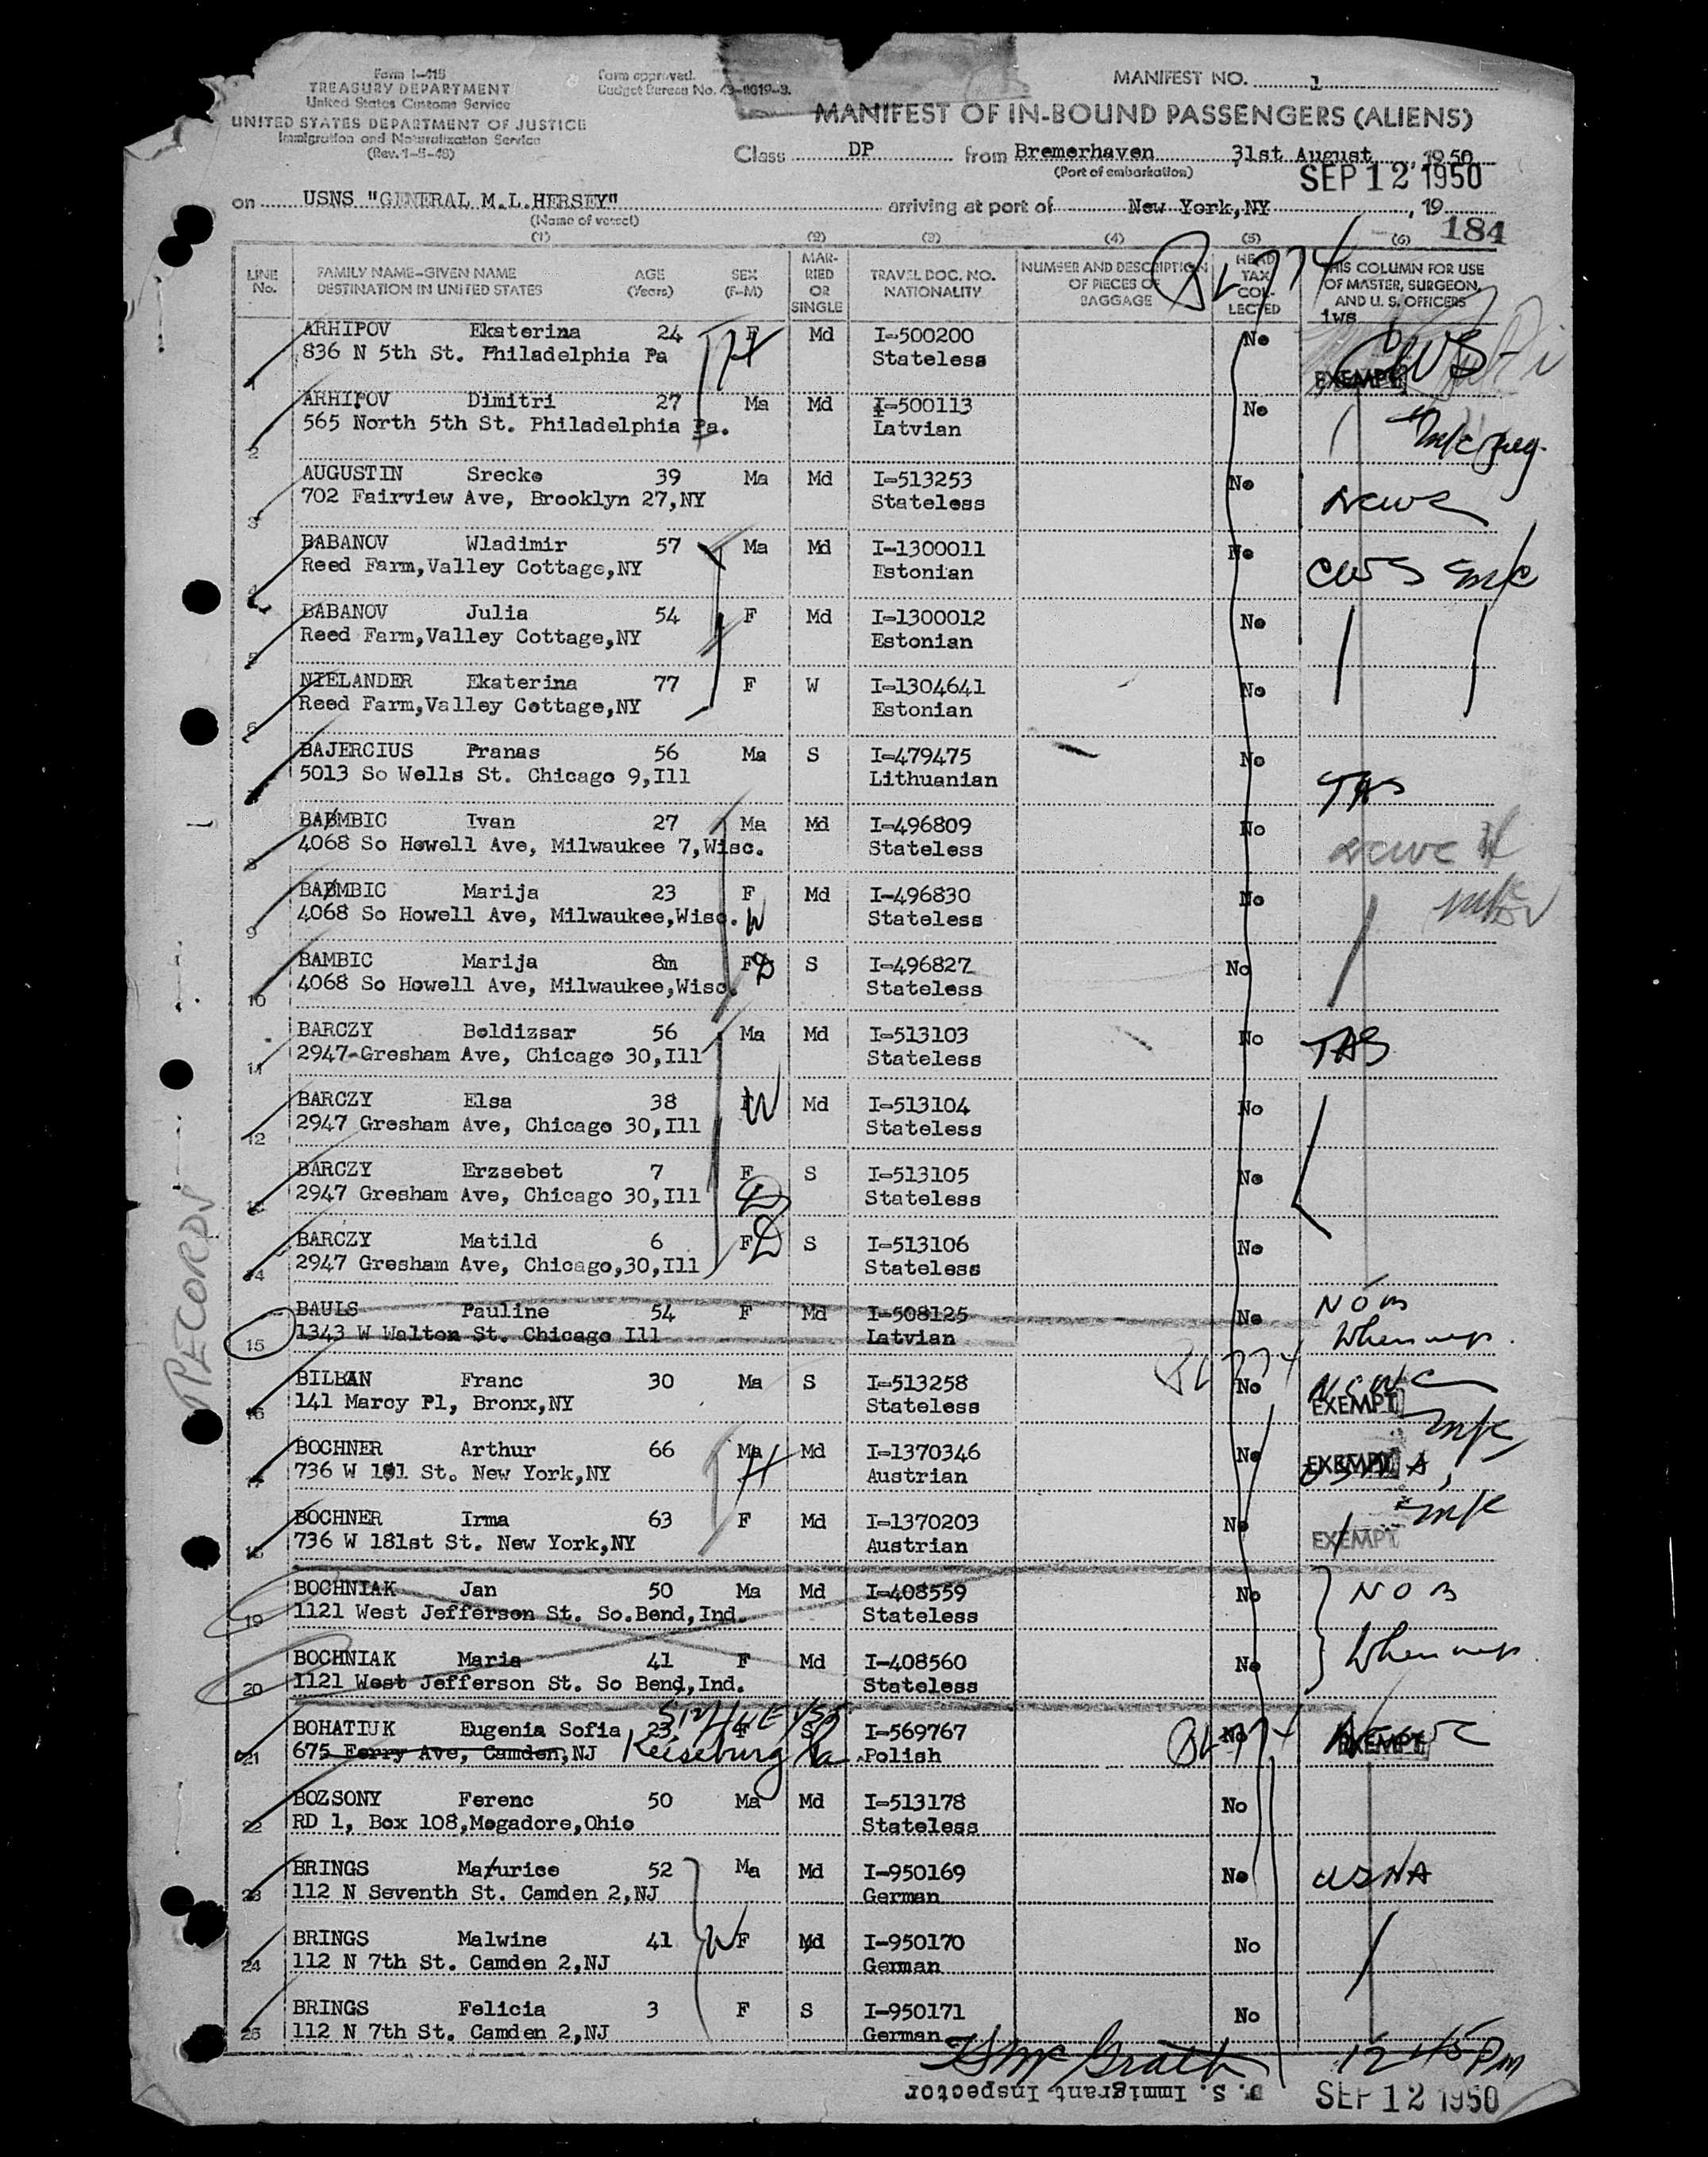 Form I-415
TREASURY DEPARTMENT
United States Customs Service
UNITED STATES DEPARTMENT OF JUSTICE
Immigration and Naturalization Service
(Rev. 1-5-48)
Form approved.
Budget Bureau No. 43-R019-3.
MANIFEST NO. 1
MANIFEST OF IN-BOUND PASSENGERS (ALIENS)
Class DP from Bremerhaven 31st August, 1950
(Port of embarkation)
SEP 12 1950
on USNS "GENERAL M.L.HERSEY" arriving at port of New York,NY, 19
(Name of vessel)
184
(1) (2) (3) (4) (5) (6)
LINE No. FAMILY NAME-GIVEN NAME DESTINATION IN UNITED STATES AGE (Years) SEX (F-M) MARRIED OR SINGLE TRAVEL DOC. NO. NATIONALITY NUMBER AND DESCRIPTION OF PIECES OF BAGGAGE HEAD TAX COLLECTED THIS COLUMN FOR USE OF MASTER, SURGEON, AND U. S. OFFICERS
PL 774
iws
1 ARHIPOV Ekaterina 24 F H Md I-500200 No CWS
836 N 5th St. Philadelphia Pa Stateless EXEMPT
2 ARHIPOV Dimitri 27 Ma Md I-500113 No
565 North 5th St. Philadelphia Pa. Latvian
3 AUGUSTIN Srecko 39 Ma Md I-513253 No
702 Fairview Ave, Brooklyn 27,NY Stateless NCWC
4 BABANOV Wladimir 57 Ma Md I-1300011 No
Reed Farm,Valley Cottage,NY Estonian CWS m/c
5 BABANOV Julia 54 F Md I-1300012 No
Reed Farm,Valley Cottage,NY Estonian
6 NIELANDER Ekaterina 77 F W I-1304641 No
Reed Farm,Valley Cottage,NY Estonian
7 BAJERCIUS Pranas 56 Ma S I-479475 No
5013 So Wells St. Chicago 9,Ill Lithuanian TAS
8 BABMBIC Ivan 27 Ma Md I-496809 No
4068 So Howell Ave, Milwaukee 7,Wisc. Stateless NCWC
9 BABMBIC Marija 23 F Md I-496830 No
4068 So Howell Ave, Milwaukee,Wisc. W Stateless
10 BAMBIC Marija 8m F D S I-496827 No
4068 So Howell Ave, Milwaukee,Wisc. Stateless
11 BARCZY Boldizsar 56 Ma Md I-513103 No TAS
2947-Gresham Ave, Chicago 30,Ill Stateless
12 BARCZY Elsa 38 F W Md I-513104 No
2947 Gresham Ave, Chicago 30,Ill Stateless
13 BARCZY Erzsebet 7 F S I-513105 No
2947 Gresham Ave, Chicago 30,Ill D Stateless
14 BARCZY Matild 6 F D S I-513106 No
2947 Gresham Ave, Chicago,30,Ill Stateless
15 BAULS Pauline 54 F Md I-508125 No NOB
1343 W Walton St. Chicago Ill Latvian When insp.
PL 774
16 BILBAN Franc 30 Ma S I-513258 No NCWC
141 Marcy Pl, Bronx,NY Stateless EXEMPT
m/c
17 BOCHNER Arthur 66 Ma H Md I-1370346 No
736 W 181 St. New York,NY Austrian EXEMPT USNA
m/c
18 BOCHNER Irma 63 F Md I-1370203 No
736 W 181st St. New York,NY Austrian EXEMPT
19 BOCHNIAK Jan 50 Ma Md I-408559 No NOB
1121 West Jefferson St. So.Bend,Ind. Stateless
20 BOCHNIAK Maria 41 F Md I-408560 No When insp.
1121 West Jefferson St. So Bend,Ind. Stateless
21 BOHATIUK Eugenia Sofia 23 F S I-569767 No
675 Ferry Ave, Camden,NJ Polish PL 774 EXEMPT
22 BOZSONY Ferenc 50 Ma Md I-513178 No
RD 1, Box 108,Mogadore,Ohio Stateless
23 BRINGS Maxurice 52 Ma Md I-950169 No USNA
112 N Seventh St. Camden 2,NJ German
24 BRINGS Malwine 41 W F Md I-950170 No
112 N 7th St. Camden 2,NJ German
25 BRINGS Felicia 3 F S I-950171 No
112 N 7th St. Camden 2,NJ German
RECORDS
McGrath
U. S. Immigrant Inspector
12 45 PM
SEP 12 1950